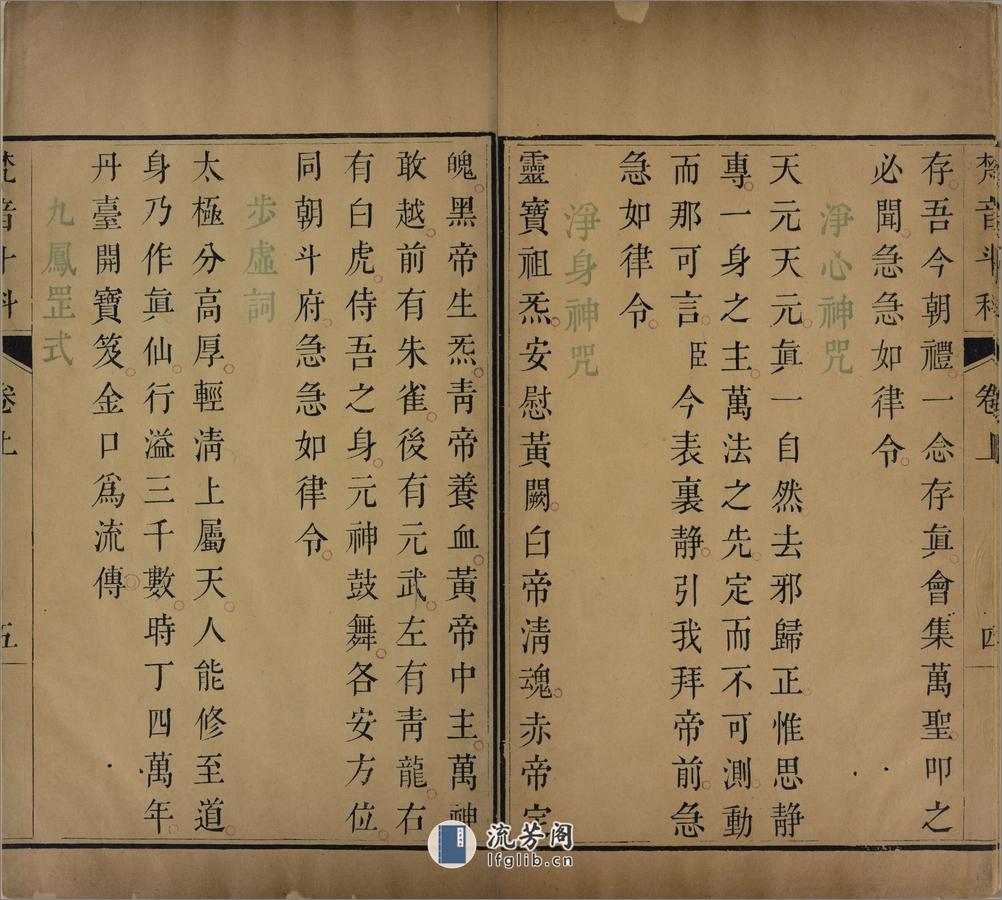 梵音斗科 卷上 四
存吾今朝禮一念存眞會集萬聖叩之
必聞急急如律令
淨心神咒
天元天元眞一自然去邪歸正惟思静
專一身之主萬法之先定而不可測動
而那可言臣今表裏静引我拜帝前急
急如律令
淨身神咒
靈寶祖炁安慰黃闕白帝淸魂赤帝定
魄黑帝生炁靑帝養血黃帝中主萬神
敢越前有朱雀後有元武左有靑龍右
有白虎侍吾之身元神鼓舞各安方位
同朝斗府急急如律令
步虛詞
太極分高厚輕淸上屬天人能修至道
身乃作眞仙行溢三千數時丁四萬年
丹臺開寶笈金口爲流傳
九鳳罡式
梵音斗科 卷上 五
流芳阁
lfglib.cn